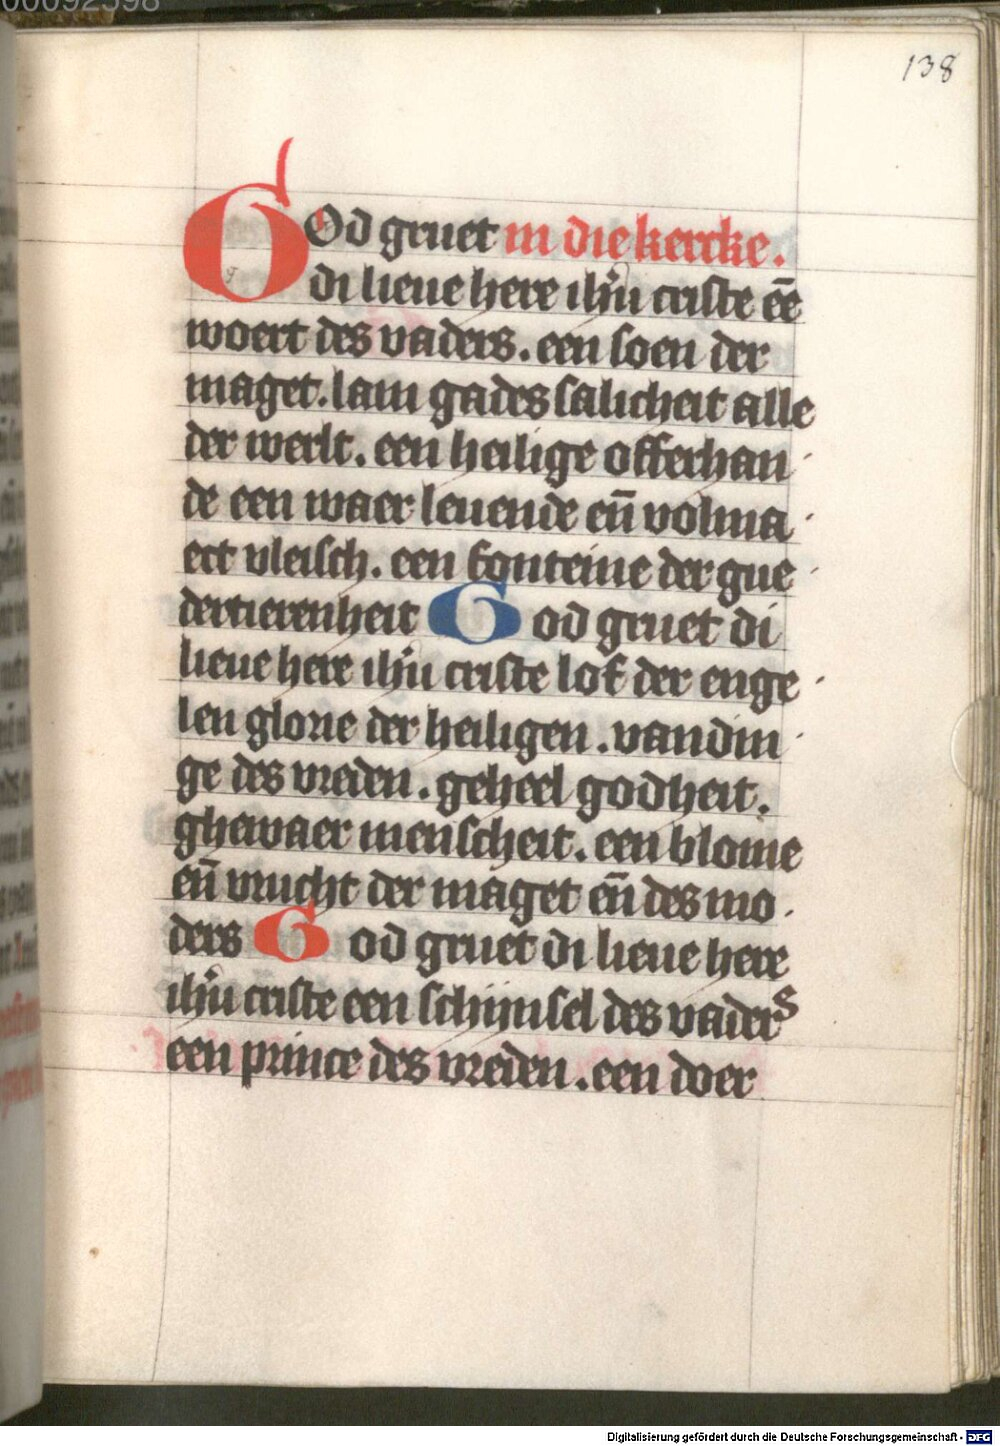 00092598
138
GOd gruet in die kercke.
di lieue here ihu criste ee̅
woert des vaders. een soen der
maget. lam gades salicheit alle
der werlt. een heilige offerhan
de een waer leuende en̅ volma
ect vleisch. een fonteine der gue
dertierenheit God gruet di
lieue here ihu criste lof der enge
len glorie der heiligen. vandin
ge des vreden. geheel godheit.
ghewaer menscheit. een blome
en̅ vrucht der maget en̅ des mo
ders God gruet di lieue here
ihu criste een schijnsel des vaders
een prince des vreden. een doer
Digitalisierung gefördert durch die Deutsche Forschungsgemeinschaft - DFG